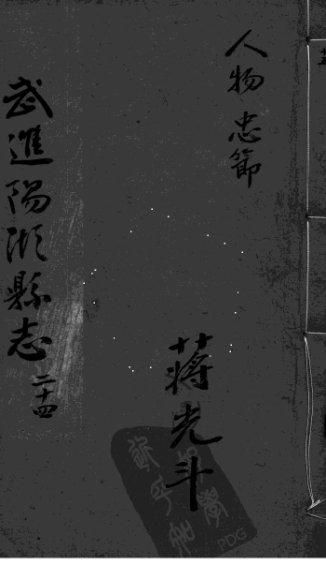 人物 忠節
蔣光斗
武進陽湖縣志 二十四
PDG